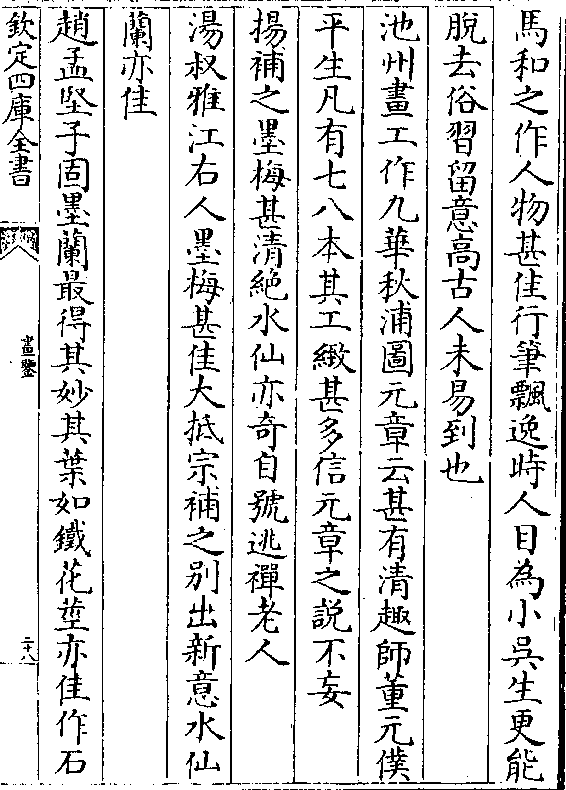 馬和之作人物甚佳行筆飄逸時人目為小吳生更能
脫去俗習留意高古人未易到也
池州畫工作九華秋浦圖元章云甚有清趣師董元僕
平生凡有七八本其工緻甚多信元章之說不妄
揚補之墨梅甚清絶水仙亦奇自號逃禪老人
湯叔雅江右人墨梅甚佳大抵宗補之别出新意水仙
蘭亦佳
趙孟堅子固墨蘭最得其妙其葉如鐵花莖亦佳作石
欽定四庫全書
畫鑒
二十八